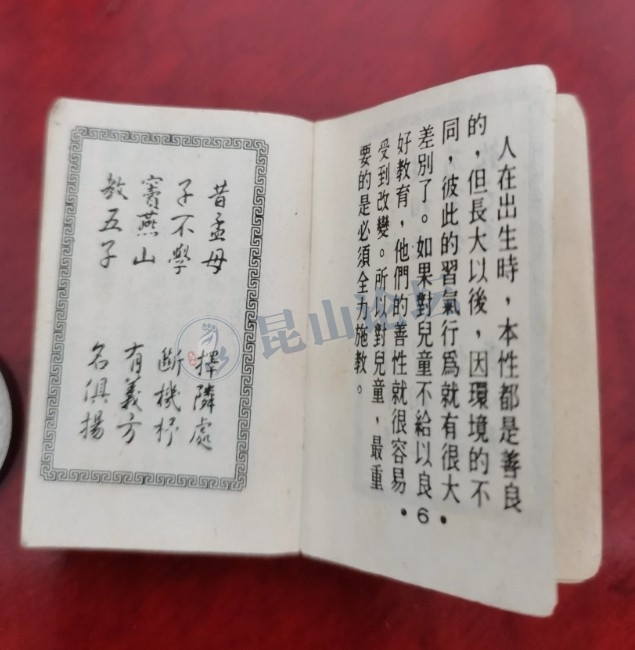 人在出生時，本性都是善良
的，但長大以後，因環境的不
同，彼此的習氣行爲就有很大
差別了。如果對兒童不給以良
好教育，他們的善性就很容易
受到改變。所以對兒童，最重
要的是必須全力施教。
·6·
昔孟母 擇隣處
子不學 断機杼
竇燕山 有義方
教五子 名俱揚
昆山论坛